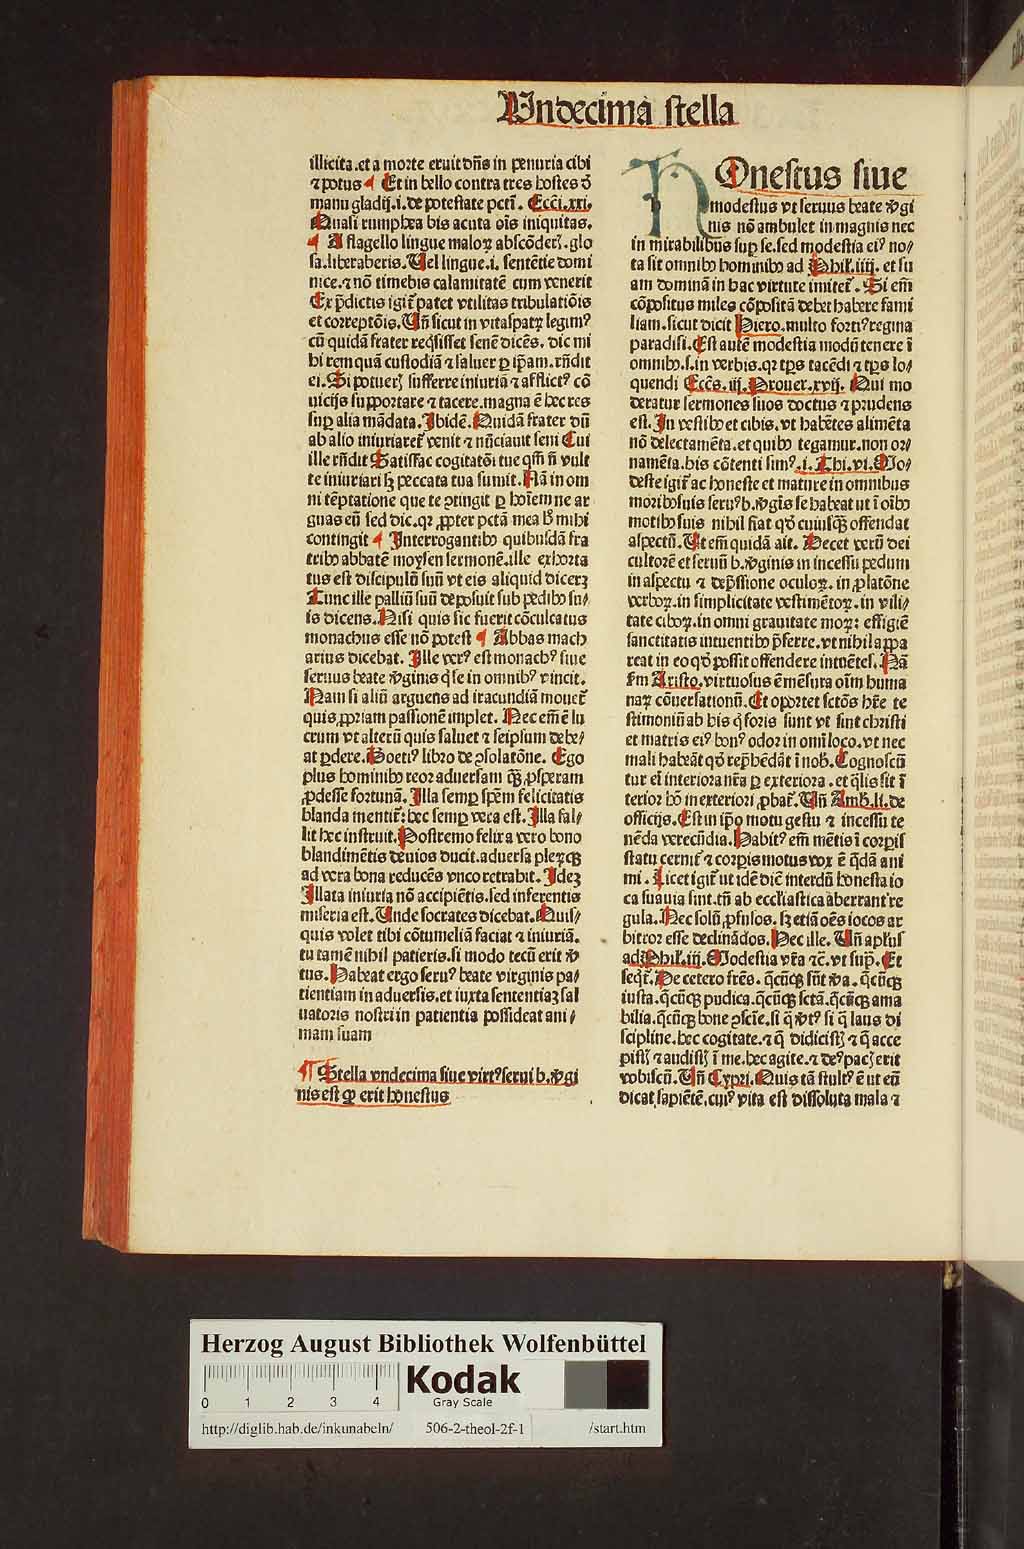 Undecima stella
illicita.et a morte eruit dñs in penuria cibi
⁊ potus ¶ Et in bello contra tres hostes ð
manu gladij.i.de potestate pctī. Ecci.xxi.
Quasi rumphea bis acuta oīs iniquitas.
¶ A flagello lingue maloꝝ abscōderꝭ.glo
sa.liberaberis.Uel lingue.i. sentētie domi
nice.⁊ nō timebis calamitatē cum venerit
Ex p̄dictis igit̄ patet vtilitas tribulatiōis
et correptōis.Uñ sicut in vitaspatꝝ legim⁹
cū quidā frater reqͥsisset senē dicēs. dic mi
hi rem quā custodiā ⁊ saluer ꝑ ip̄am.rñdit
ei.Si potuerꝭ sufferre iniuriā ⁊ afflict⁹ cō
uicijs supportare ⁊ tacere.magna ē hec res
suꝑ alia mādata.Ibidē.Quidā frater dū
ab alio iniuriaret̄ venit ⁊ nūciauit seni Cui
ille rñdit Satisfac cogitatōi tue qm̄ ñ vult
te iniuriari sꝫ peccata tua sumit.Nā in om
ni tēptatione que te ꝯtingit ꝑ hoīem ne ar
guas eū sed dic.qꝛ ꝓpter pctā mea h̄ mihi
contingit ¶ Interrogantibꝰ quibusdā fra
tribꝰ abbatē moysen sermonē.ille exhorta
tus est discipulū suū vt eis aliquid dicerꝫ
Tunc ille palliū suū deposuit sub pedibꝰ su⸗
is dicens.Nisi quis sic fuerit cōculcatus
monachus esse nō potest ¶ Abbas mach
arius dicebat. Ille ver⁹ est monach⁹ siue
seruus beate v̄ginis qͥ se in omnibꝰ vincit.
Nam si aliū arguens ad iracundiā mouet̄
quis.ꝓpriam passionē implet. Nec em̄ ē lu
crum vt alterū quis saluet ⁊ seipsum debe⸗
at ꝑdere.Boeti⁹ libro de ꝯsolatōne. Ego
plus hominibꝰ reor aduersam qꝫ ꝓsperam
ꝓdesse fortunā. Illa semꝑ spēm felicitatis
blanda mentit̄: hec semꝑ vera est.Illa fal⸗
lit hec instruit.Postremo felix a vero bono
blandimētis deuios ducit.aduersa pleꝝqꝫ
ad vera bona reducēs vnco retrahit. Ideꝫ
Illata iniuria nō accipiētis.sed inferentis
miseria est.Unde socrates dicebat.Quis⸗
quis volet tibi cōtumeliā faciat ⁊ iniuriā.
tu tamē nihil patieris.si modo tecū erit v̄
tus.Habeat ergo seru⁹ beate virginis pa⸗
tientiam in aduersis.et iuxta sententiaꝫ sal
uatoris nostri in patientia possideat ani⸗
mam suam
¶ Stella vndecima siue virt⁹ serui b.v̄gi
nis est ꝙ erit honestus
HOnestus siue
modestus vt seruus beate v̄gi
nis nō ambulet in magnis nec
in mirabilibus suꝑ se.sed modestia ei⁹ no⸗
ta sit omnibꝰ hominibꝰ ad Phil̄.iiij. et su
am dominā in hac virtute imitet̄. Si em̄
cōpositus miles cōpositā debet habere fami
liam.sicut dicit Hiero.multo forti⁹ regina
paradisi.Est autē modestia modū tenere ī
omnibꝰ.s.in verbis.qꝛ tp̄s tacēdi ⁊ tp̄s lo⸗
quendi Ecc̄s.iij.Prouer.xvij. Qui mo
deratur sermones suos doctus ⁊ prudens
est. In vestibꝰ et cibis.vt habētes alimēta
nō delectamēta.et quibꝰ tegamur.non or⸗
namēta.his cōtenti sim⁹.i.Thi.vi.Mo⸗
deste igit̄ ac honeste et mature in omnibus
moribꝰ suis seru⁹ b.v̄gīs se habeat ut ī oībꝰ
motibꝰ suis nihil fiat qd̄ cuiusqꝫ offendat
aspectū.Ut em̄ quidā ait. Decet verū dei
cultorē et seruū b.v̄ginis in incessu pedum
in aspectu ⁊ dep̄ssione oculoꝝ.in ꝓlatōne
verboꝝ.in simplicitate vestimētoꝝ.in vili⸗
tate ciboꝝ.in omni grauitate moꝝ: effigiē
sanctitatis intuentibꝰ p̄ferre.vt nihil appa
reat in eo qd̄ possit offendere intuētes. Nā
s̄m Aristo.virtuosus ē mēsura oīm huma
naꝝ cōuersationū. Et oportet sctōs hr̄e te
stimoniū ab his qͥ foris sunt vt sint christi
et matris ei⁹ bon⁹ odor in om̄i loco.vt nec
mali habeāt qd̄ rep̄hēdāt ī nob̄.Cognoscū
tur ei interiora nr̄a ꝑ exteriora.et qͣlis sit ī
terior hō in exteriori ꝓbat̄.Uñ Amb̄.li.de
officijs.Est in ip̄o motu gestu ⁊ incessu te
nēda verecūdia.Habit⁹ em̄ mētis ī corpis
statu cernit̄ ⁊ corpis motus vox ē qͣdā ani
mi.Licet igit̄ ut idē dic̄ interdū honesta io
ca suauia sint.tñ ab ecclīastica aberrant re
gula.Nec solū ꝓfusos.sꝫ etiā oēs iocos ar
bitror esse declinādos.Hec ille. Uñ apl̄us
ad Phil̄.iij.Modestia vr̄a ⁊c.vt sup̄. Et
seqt̄.De cetero fr̄es.q̄cūqꝫ sūt v̄a.q̄cūqꝫ
iusta.q̄cūqꝫ pudica.q̄cūqꝫ sctā.q̄cūqꝫ ama
bilia.q̄cūqꝫ bone ꝯscīe.si q̄ v̄t⁹ si q̄ laus di
scipline.hec cogitate.⁊ q̄ didicistꝭ ⁊ q̄ acce
pistꝭ ⁊ audistꝭ ī me.hec agite.⁊ de⁹ pacꝭ erit
vobiscū.Uñ Cypri.Quis tā stult⁹ ē ut eū
dicat sapiētē.cui⁹ vita est dissoluta mala ⁊
Herzog August Bibliothek Wolfenbüttel
0 1 2 3 4
Kodak
Gray Scale
http://diglib.hab.de/inkunabeln/ 506-2-theol-2f-1 /start.htm